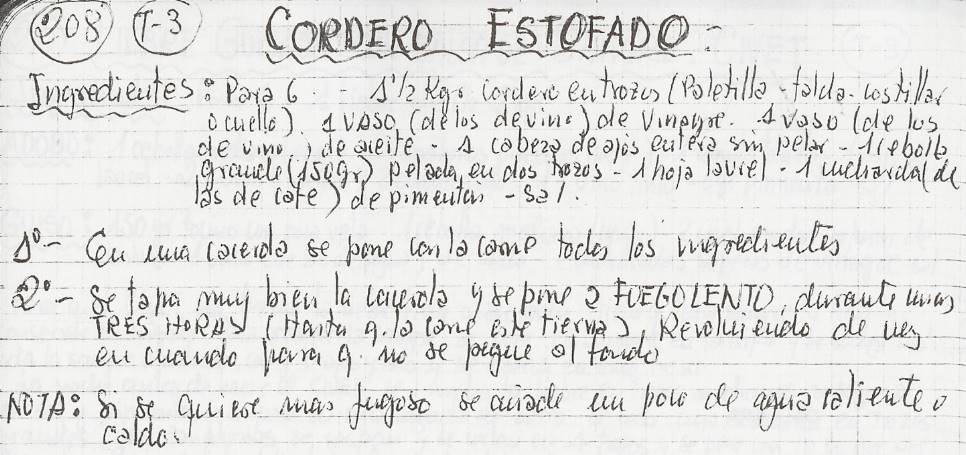 208 T-3 CORDERO ESTOFADO:
Ingredientes: Para 6 - 1 1/2 Kgr. cordero en trozos (Paletilla - falda - costillar
o cuello). 1 vaso (de los de vino) de Vinagre. 1 vaso (de los
de vino) de aceite - 1 cabeza de ajos entera sin pelar - 1 cebolla
grande (150 gr) pelada, en dos trozos - 1 hoja laurel - 1 cucharada (de
las de café) de pimentón - Sal.
1º- En una cacerola se pone con la carne todos los ingredientes
2º- Se tapa muy bien la cacerola y se pone a FUEGO LENTO, durante unas
TRES HORAS (Hasta q. la carne esté tierna), Revolviendo de vez
en cuando para q. no se pegue al fondo
NOTA: Si se quiere mas jugoso se añade un poco de agua caliente o
caldo.